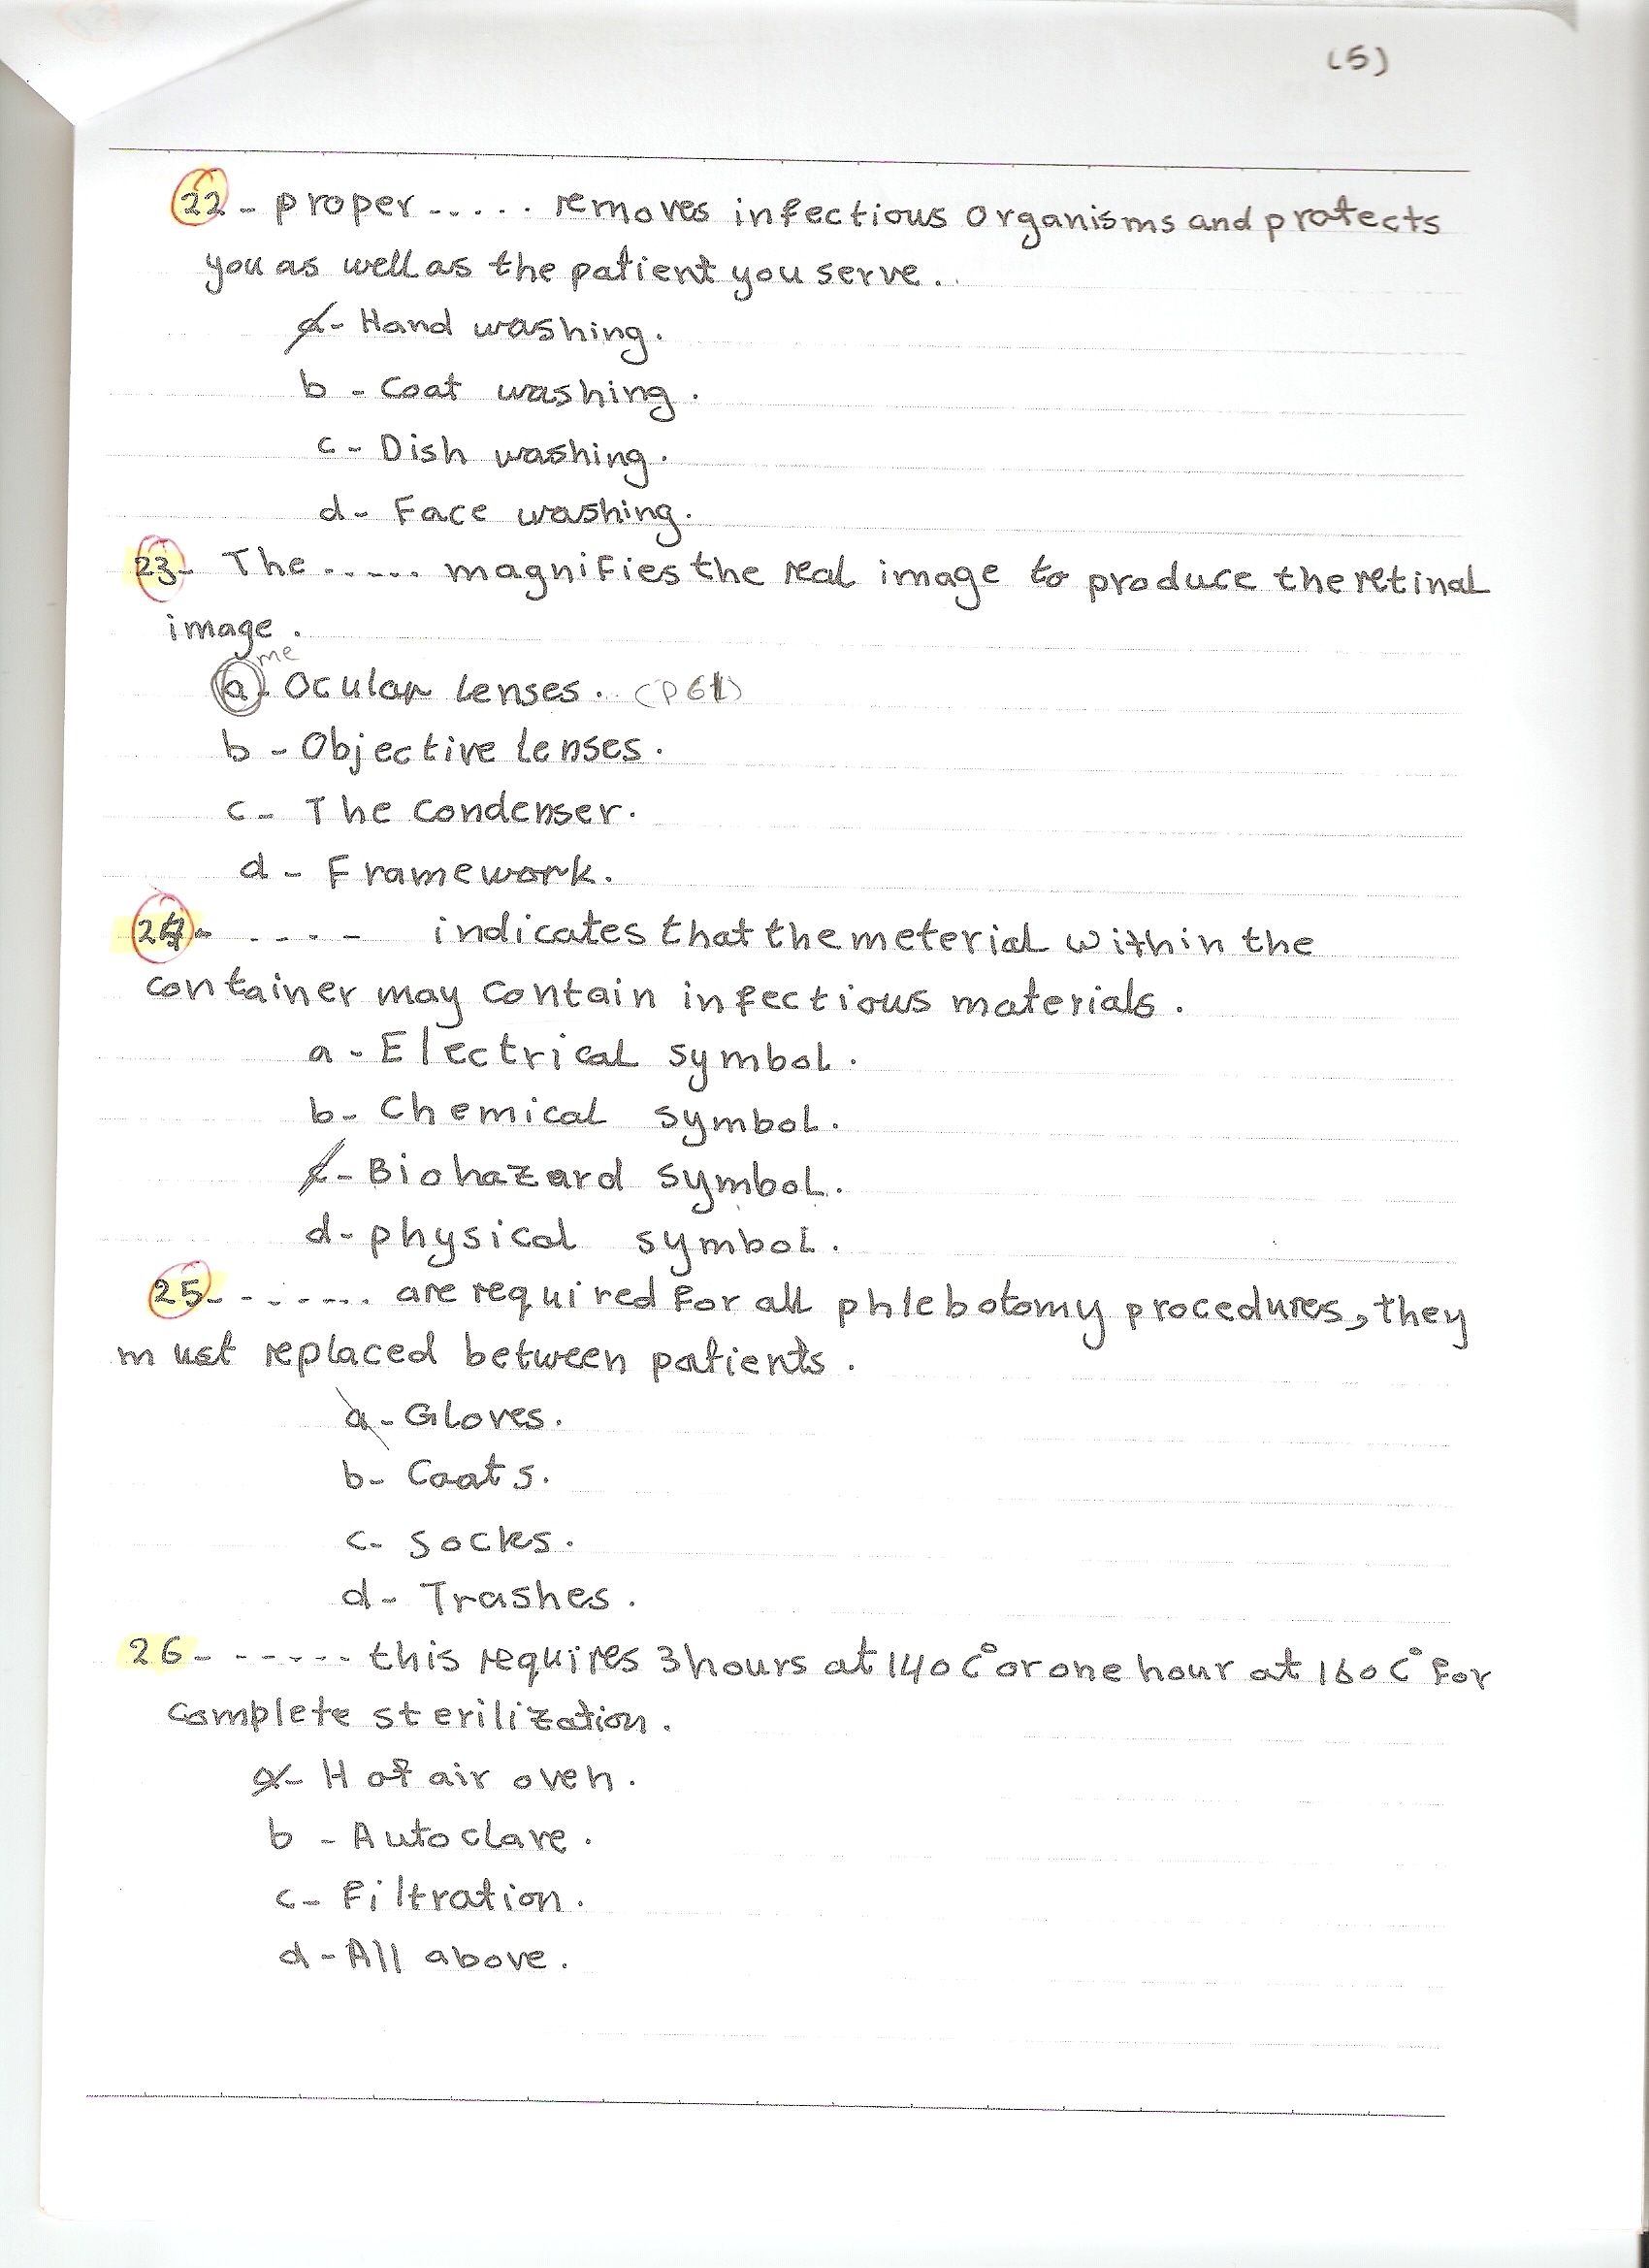 (5)
22- proper ..... removes infectious organisms and protects
you as well as the patient you serve.
a- Hand washing.
b- Coat washing.
c- Dish washing.
d- Face washing.
23- The ..... magnifies the real image to produce the retinal
image.
me
a- Ocular lenses. (P61)
b- Objective lenses.
c- The condenser.
d- Framework.
24- ..... indicates that the meterial within the
container may contain infectious materials.
a- Electrical symbol.
b- Chemical symbol.
c- Biohazard symbol.
d- physical symbol.
25- ....... are required for all phlebotomy procedures, they
must replaced between patients.
a- Gloves.
b- Coats.
c- Socks.
d- Trashes.
26- ...... this requires 3 hours at 140 C° or one hour at 160 C° for
complete sterilization.
a- Hot air oven.
b- Autoclave.
c- Filtration.
d- All above.